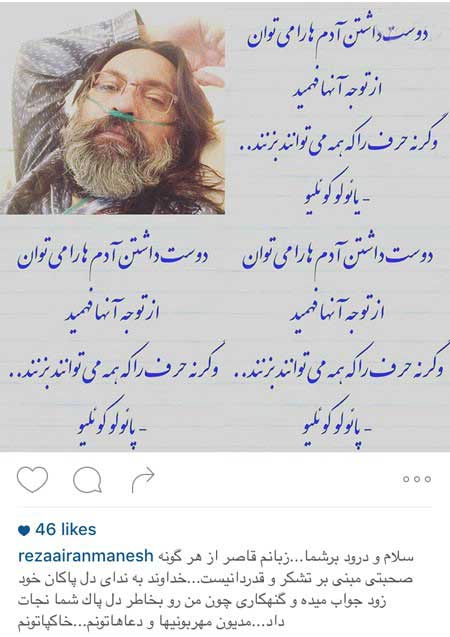 دوست داشتن آدم ها را می توان
از توجه آنها فهمید
وگرنه حرف را که همه می توانند بزنند..
- پائولو کوئلیو
دوست داشتن آدم ها را می توان
از توجه آنها فهمید
وگرنه حرف را که همه می توانند بزنند..
- پائولو کوئلیو
دوست داشتن آدم ها را می توان
از توجه آنها فهمید
وگرنه حرف را که همه می توانند بزنند..
- پائولو کوئلیو
46 likes
rezaairanmanesh سلام و درود برشما...زبانم قاصر از هر گونه
صحبتی مبنی بر تشکر و قدردانیست...خداوند به ندای دل پاکان خود
زود جواب میده و گنهکاری چون من رو بخاطر دل پاك شما نجات
داد...مدیون مهربونیها و دعاهاتونم...خاکپاتونم